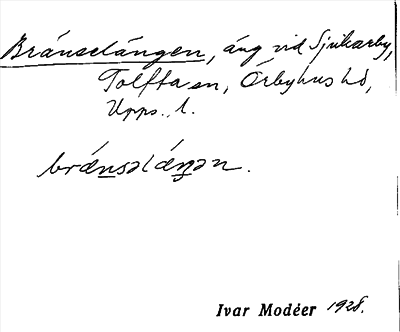 Bränselängen, äng vid Sjukarby,
Tolfta sn, Örbyhus hd,
Upps. l.
brä́nsəlä́ŋən.
Ivar Modéer 1928.